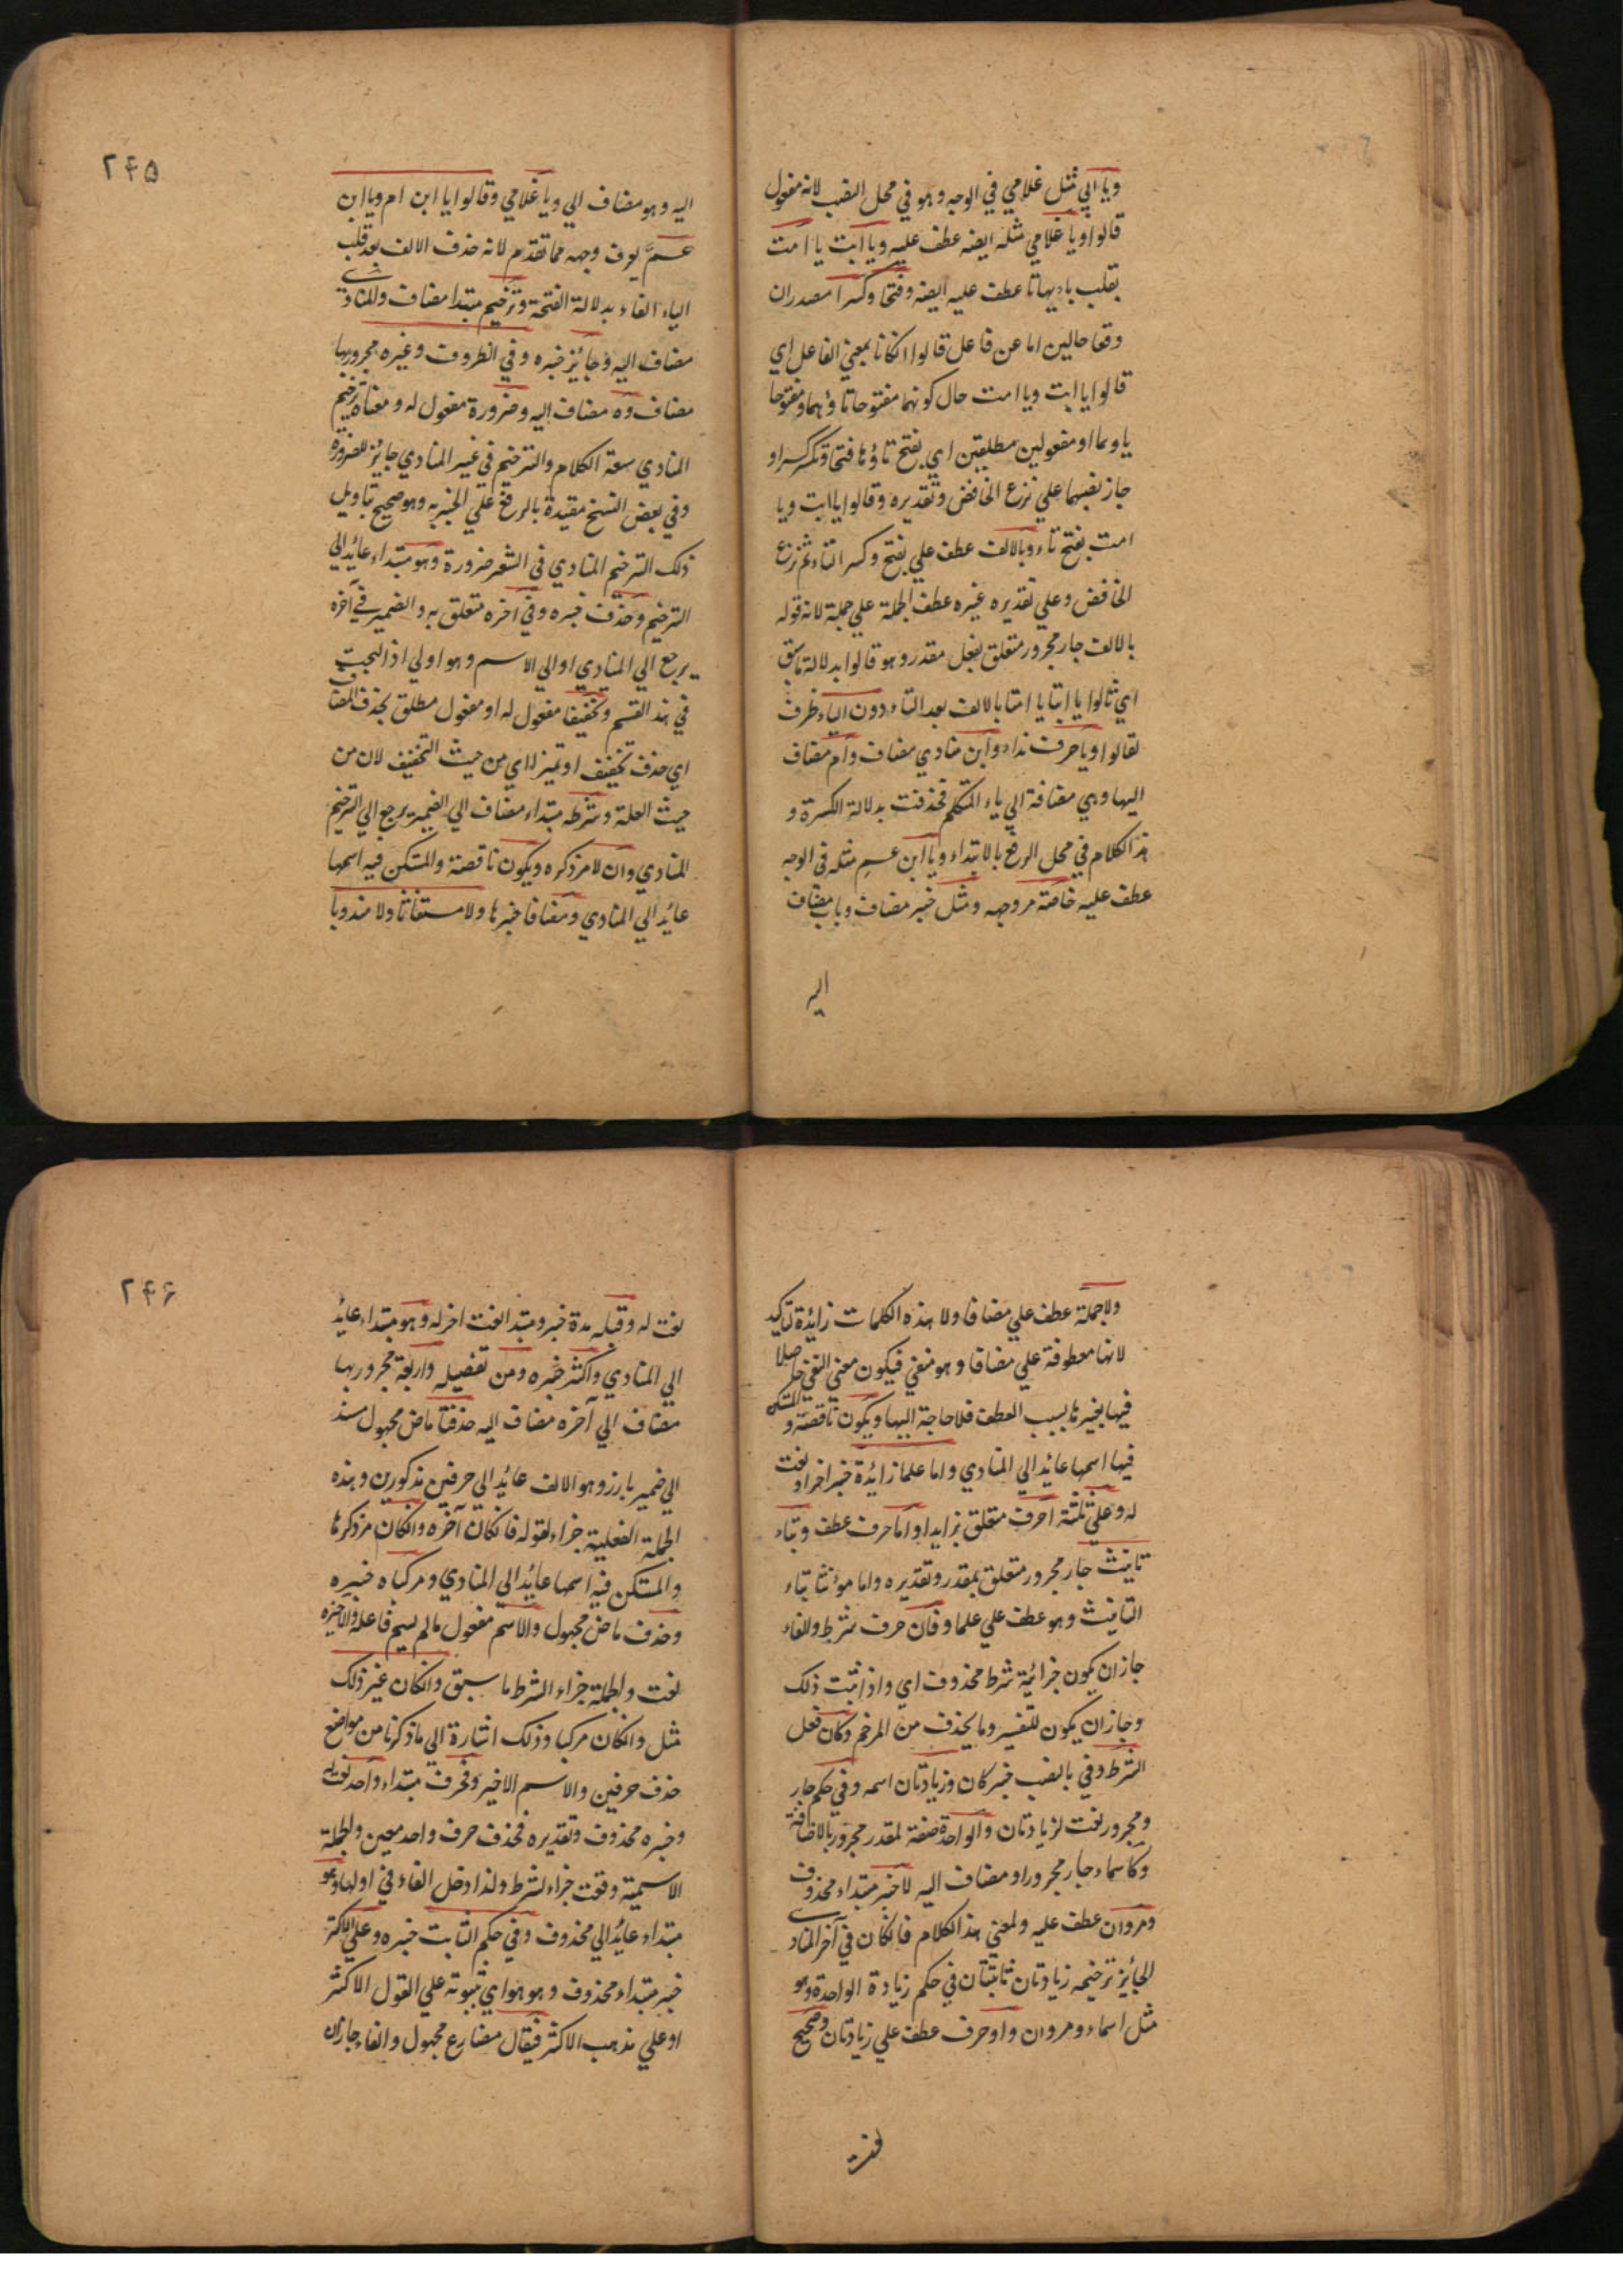 ويا ابي مثل غلامي في الوجه وهو في محل النصب لانه مفعول
قالوا ويا غلامي مثله ايضه عطف عليه ويا ابت يا امت
بقلب ياءيهما تا عطف عليه ايضه وفتحا وكسرا مصدران
وقعا حالين اما عن فاعل قالوا انكانا بمعني الفاعل اي
قالوا يا ابت ويا امت حال كونهما مفتوحا تاؤهما ومفتوحا
ياوهما او مفعولين مطلقين اي بفتح تاؤها فتحا وتكسر كسرا و
جاز نصبهما علي نزع الخافض وتقديره وقالوا يا ابت ويا
امت بفتح تاء وبالالف عطف علي بفتح وكسر التاء ثم نزع
الخافض وعلي تقديره غيره عطف الجملة علي جملة لانه قوله
بالالف جار مجرور متعلق بفعل مقدر وهو قالوا بدلالة ما سبق
اي قالوا يا ابتا يا امتا بالالف بعد التاء دون الياء ظرف
لقالوا ويا حرف نداء وابن منادي مضاف وام مضاف
اليها وهي مضافة الي ياء المتكلم فحذفت بدلالة الكسرة و
هذا الكلام في محل الرفع بالابتداء ويا ابن عم مثله في الوجه
عطف عليه خاصة مر وجهه ومثل خبر مضاف وباب مضاف
اليه
٢۴۵
اليه وهو مضاف الي ويا غلامي وقالوا يا ابن ام ويا ابن
عمّ يعرف وجهه مما تقدم لانه حذف الالف بعد قلب
الياء الفاء بدلالة الفتحة وترخيم مبتدا مضاف والمنادي
مضاف اليه وجائز خبره وفي الظروف وغيره مجرورها
مضاف وه مضاف اليه وضرورة مفعول له ومعناه ترخيم
المنادي سعة الكلام والترخيم في غير المنادي جائز للضرورة
وفي بعض النسخ مقيدة بالرفع علي الخبريه وهو صحيح بتاويل
ذلك الترخيم المنادي في الشعر ضرورة وهو مبتداء عائد الي
الترخيم وحذف خبره وفي اخره متعلق به والضمير في آخره
يرجع الي المنادي او الي الاسم وهو اولي اذ البحث
في هذ القسم وتخفيفا مفعول له او مفعول مطلق بحذف المضاف
اي حذف تخفيف او تميز له اي من حيث التخفيف لان من
حيث العلة وشرطه مبتداء مضاف الي الضمير يرجع الي الترخيم
المنادي وان لا مر ذكره ويكون ناقصة والمستكن فيه اسمها
عائد الي المنادي ومضافا خبرها ولا مستغاثا ولا مندوبا
ولا جملة عطف علي مضافا ولا هذه الكلمات زائدة لتاكيد
لانها معطوفة علي مضافا وهو منفي فيكون معني النفي حاصلا
فيها بغيرها بسبب العطف فلا حاجة اليها ويكون ناقصة والمستكن
فيها اسمها عائد الي المنادي واما علما زائدة خبر اخر او نعت
له وعلي ثلثة احرف متعلق بزايدا واما حرف عطف وبتاء
تانيث جار مجرور متعلق بمقدر وتقديره واما مؤنثا بتاء
التانيث وهو عطف علي علما وفان حرف شرط والفاء
جاز ان يكون جزائية شرط محذوف اي واذا ثبت ذلك
وجاز ان يكون للتفسير وما يحذف من المرخم وكان فعل
الشرط وفي بالنصب خبر كان وزيادتان اسمه وفي حكم جار
ومجرور نعت لزيادتان والواحدة صفة لمقدر مجرور بالاضافة
وكاسماء جار مجرور او مضاف اليه لا خبر مبتداء محذوف
ومروان عطف عليه ولمعني هذ الكلام فانكان في آخر المنادي
الجائز ترخيمه زيادتان ثابتتان في حكم زيادة الواحدة وهو
مثل اسماء ومروان واو حرف عطف علي زيادتان وصحيح
نعت
٢۴۶
نعت له وقبله مدة خبر ومبتدا نعت اخر له وهو مبتداء عائد
الي المنادي واكثر خبره ومن تفضيله واربعة مجرور بها
مضاف الي آخره مضاف اليه حذفتا ماض مجهول مسند
الي ضمير بارز وهو الالف عائد الي حرفين مذكورين وهذه
الجملة الفعلية جزاء لقوله فانكان آخره وانكان مر ذكرها
والمستكن فيه اسمها عائد الي المنادي ومركبا ه خبره
وحذف ماض مجهول والاسم مفعول ما لم يسم فاعله والاخيره
نعت والجملة جزاء الشرط ما سبق وانكان غير ذلك
مثل وانكان مركبا وذلك اشارة الي ما ذكرنا من مواضع
حذف حرفين والاسم الاخير وفحرف مبتداء واحد نعت له
وخبره محذوف وتقديره فحذف حرف واحد معين والجملة
الاسمية وقعت جزاء لشرط ولذا دخل الفاء في اولها وهو
مبتداء عائد الي محذوف وفي حكم الثابت خبره وعلي الاكثر
خبر مبتداء محذوف وهو هو اي ثبوته علي القول الاكثر
او علي مذهب الاكثر فيقال مضارع مجهول والفاء جاز ان